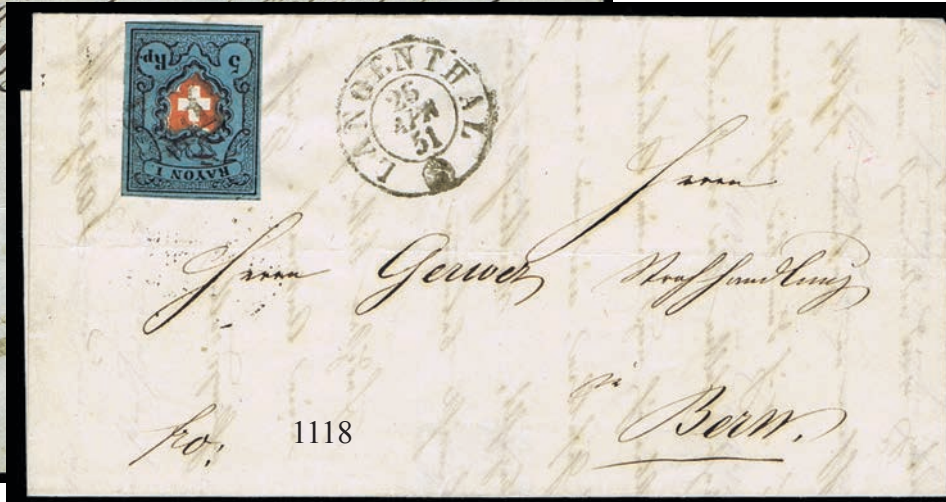 5 Rp.
RAYON I
LANGENTHAL
25
APR
51
Herrn
Herrn Gerwer
zu
Bern.
fro:
1118